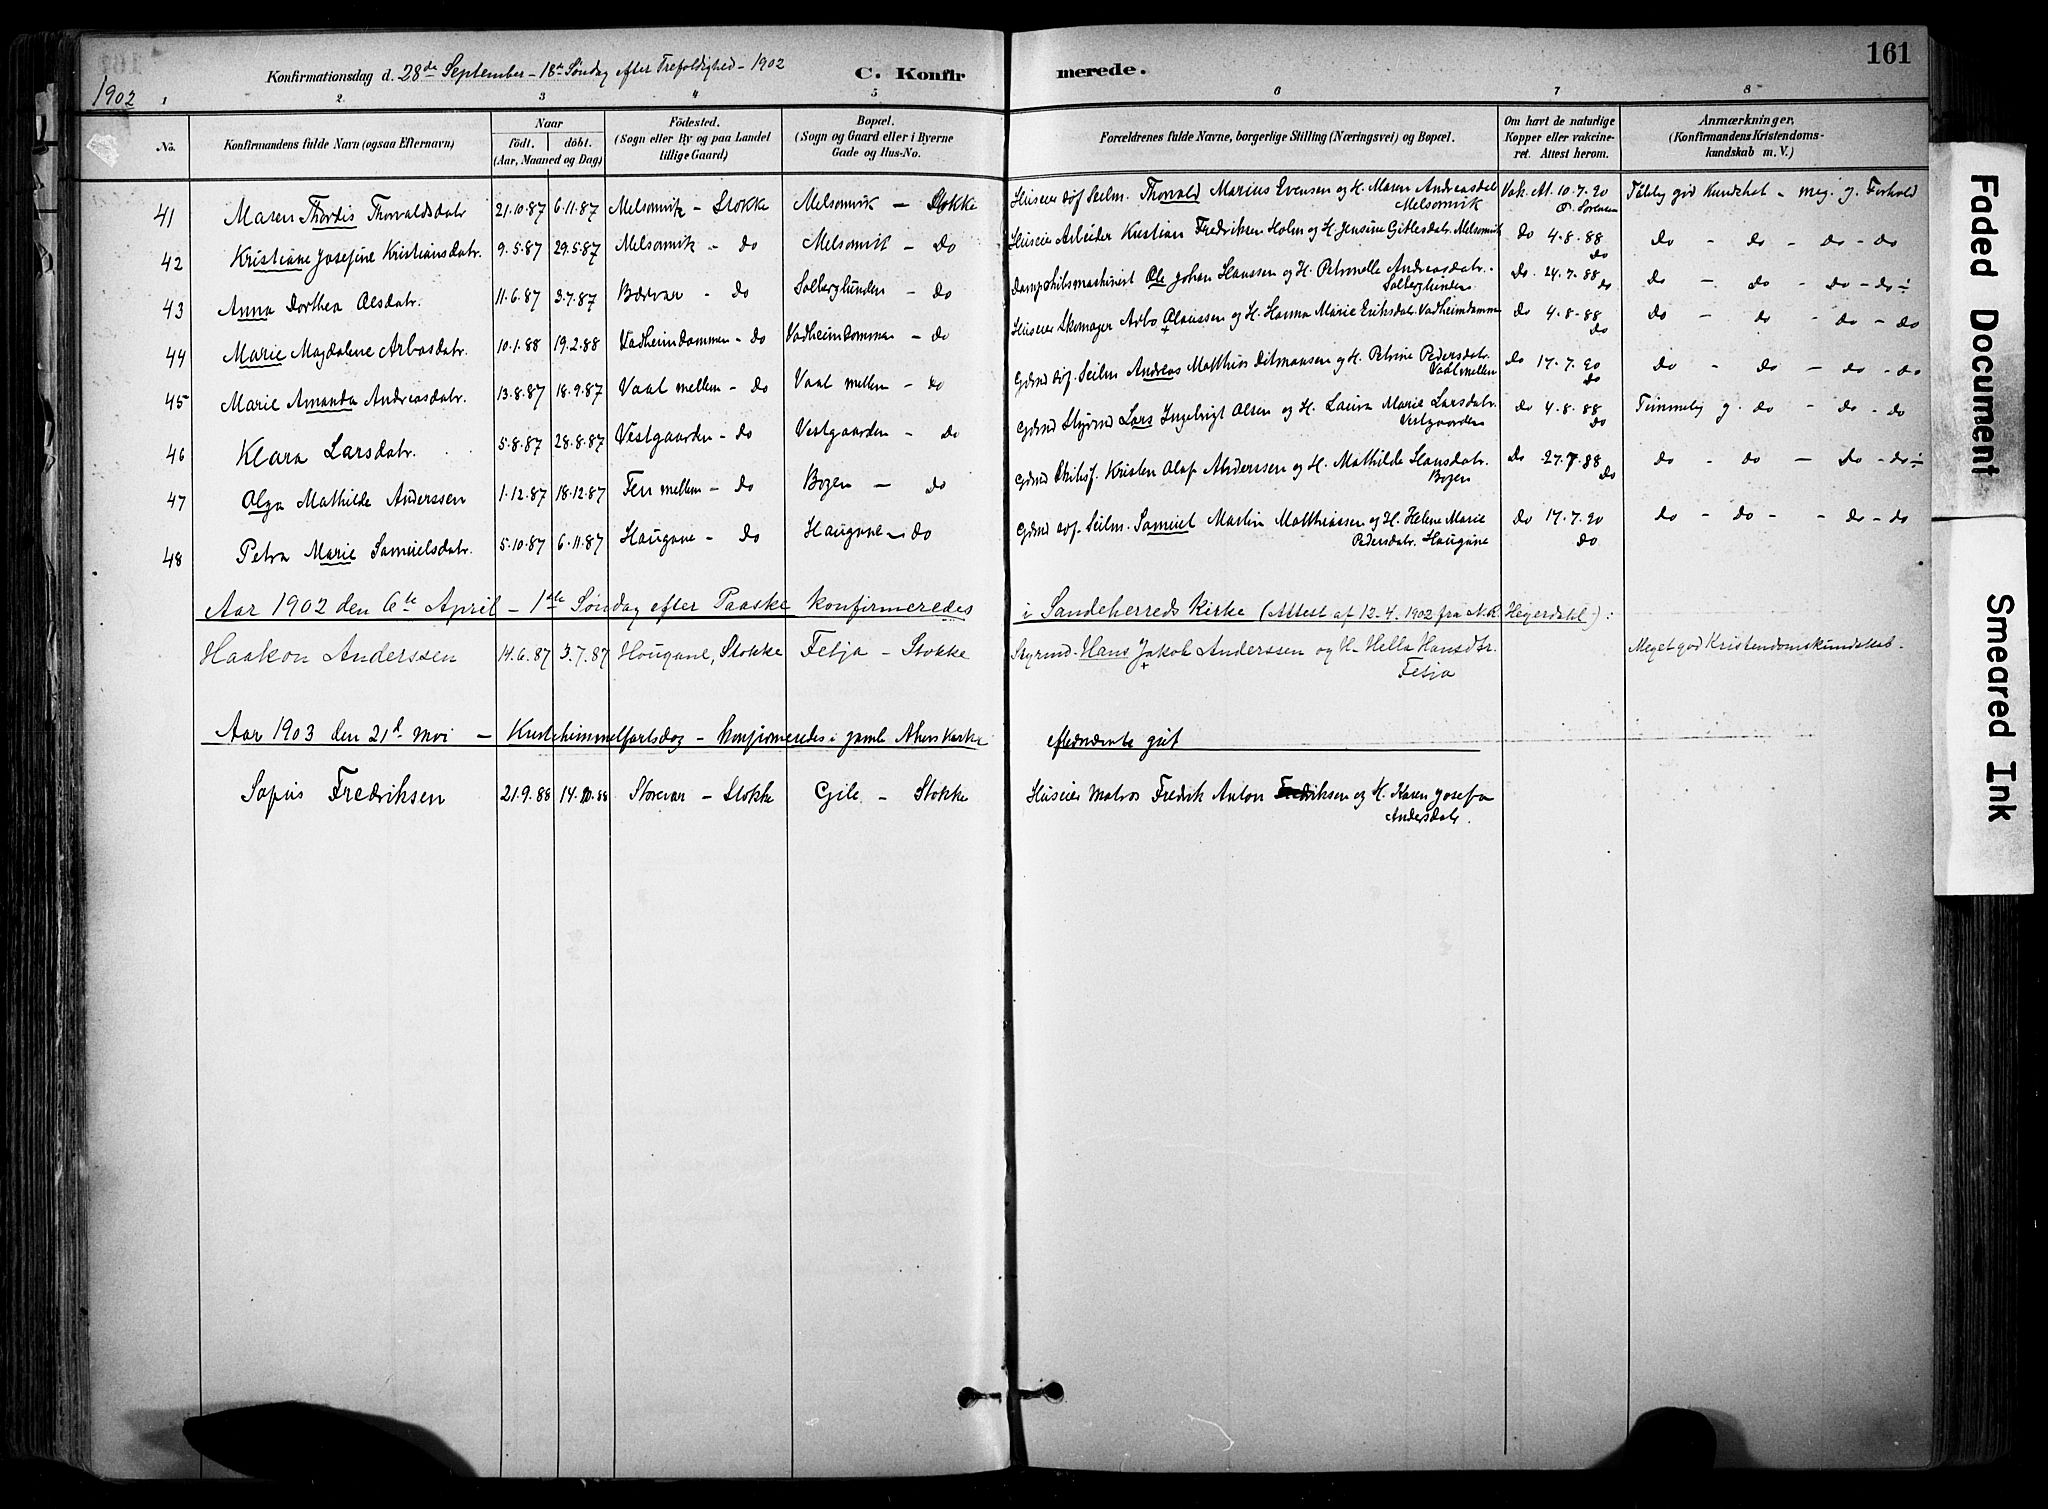 161
Konfirmationsdag d. 28de September - 18de Søndag efter Trefoldighed - 1902 C. Konfirmerede.
1902
1 2. 3 4 5 6 7 8
No. Konfirmandens fulde Navn (ogsaa Efternavn) Naar født. døbt. (Aar, Maaned og Dag) Fødested. (Sogn eller By og paa Landet tillige Gaard) Bopæl. (Sogn og Gaard eller i Byerne Gade og Hus-No. Forældrenes fulde Navne, borgerlige Stilling (Næringsvei) og Bopæl. Om havt de naturlige Kopper eller vakcineret. Attest herom. Anmærkninger, (Konfirmandens Kristendomskundskab m. V.)
41 Maren Thordis Thorvaldsdatr 21.10.87 6.11.87 Melsomvik - Stokke Melsomvik - Stokke Huseier Thorvald Marius Evensen og H. Maren Andreasdatr Melsomvik Vak. At. 10.7.90 O. Sørensen god Kundskab - meg. g. Forhold
42 Kristiane Josefine Kristiansdatr. 9.5.87 29.5.87 Melsomvik - do Melsomvik - do Huseier Arbeider Kristian Fredriksen Holm og H. Jensine Melsomvik do 4.8.88 do do - do - do - do
43 Anna Dorthea Olsdatr. 11.6.87 3.7.87 do Solberglunden - do Dampskibsmaskinist Ole Johan Hanssen og H. Petronelle Andreasdatr. Solberglunden do 24.7.88 do do - do - do - do ÷
44 Marie Magdalene Arbosdatr. 10.1.88 19.2.88 Vadheimdammen - do Vadheimdammen - do Huseier Skomager Arbo Olaussen og H. Hanna Marie Eriksdatr. Vadheimdammen do 4.8.88 do do - do - do - do
45 Marie Amanda Andreasdatr. 13.8.87 18.9.87 Vaal mellem - do Vaal mellem - do Andreas Matthias Ditmansen og H. Petrine Pedersdatr. Vaal mellem do 17.7.90 do do - do - do - do
46 Klara Larsdatr. 5.8.87 28.8.87 Vestgaarden - do Vestgaarden - do Gdmd Styrmd Lars Ingebrigt Olsen og H. Laura Marie Larsdatr. Vestgaarden do 4.8.88 do Temmelig g. do - do - do
47 Olga Mathilde Anderssen 1.12.87 18.12.87 Fen mellem - do Bogen - do Gdmd Skibsf. Kristen Olaf Anderssen og H. Mathilde Hansdatr. Bogen do 27.7.88 do do - do - do - do ÷
48 Petra Marie Samuelsdatr. 5.10.87 6.11.87 Haugane - do Haugane - do Gdmd Samuel Martin Matthiassen og H. Helene Marie Pedersdatr. Haugane do 17.7.90 do do - do - do - do
Aar 1902 den 6te April - 1ste Søndag efter Paaske konfirmeredes i Sandeherreds Kirke (Attest af 12.4.1902 fra N.K. Heyerdahl):
Haakon Anderssen 14.6.87 3.7.87 Hougane, Stokke Febja - Stokke Styrmd. Hans Jakob Anderssen og H. Hella Hansdtr. Febja Meget god Kristendomskundskab.
Aar 1903 den 21de Mai - Kristi himmelfartsdag - konfirmeredes i gamle Akers Kirke efternævnte gut
Sofus Fredriksen 21.9.88 14.10.88 Storevar - Stokke Gile - Stokke Huseier Matros Fredrik Anton Fredriksen og H. Karen Josefa Andersdatr.
Faded Document
Smeared Ink